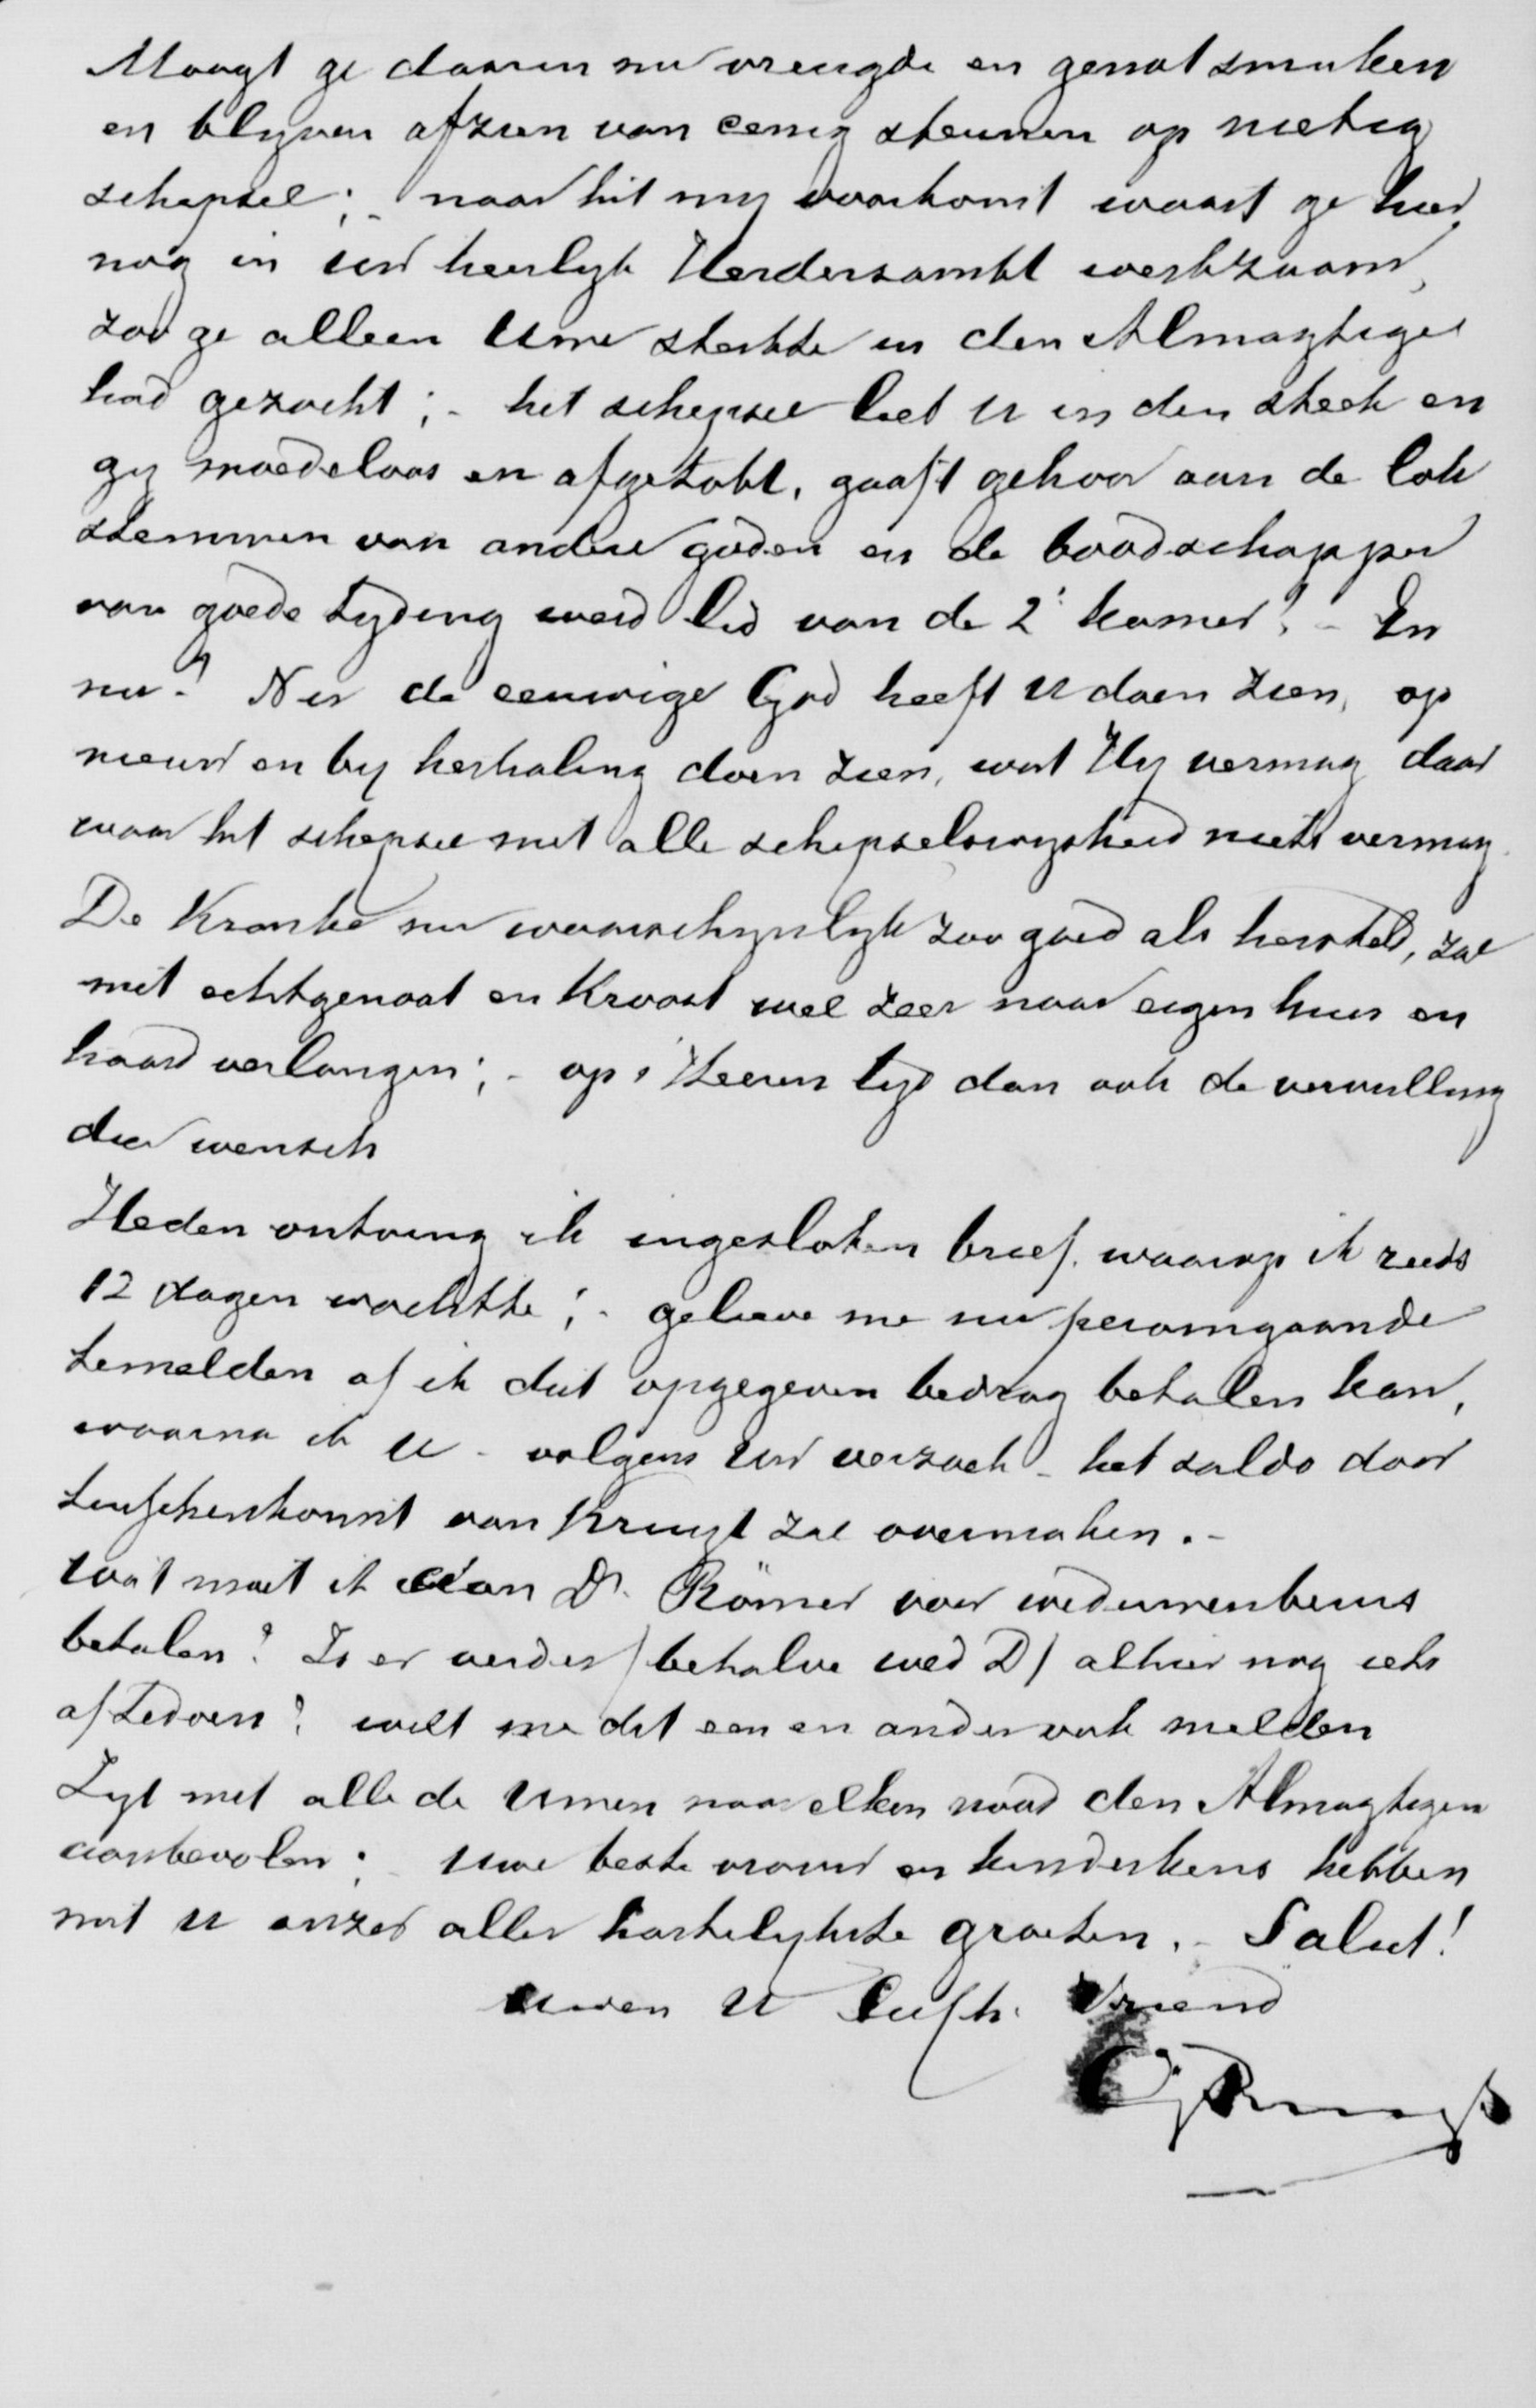 Moogt ge daarin nu vreugde en genot smaken
en blyven afzien van eenig steunen op nietig
schepsel; - naar het my voorkomt waart ge hier
nog in uw heerlyk Herdersambt werkzaam,
zoo ge alleen Uwe sterkte in den Almagtige
had gezocht; - het schepsel liet U in den steek en
gy moedeloos en afgetobt, gaaft gehoor aan de lok
stemmen van andere goden en de boodschapper
van goede tyding werd lid van de 2e kamer! - En
nu? Nu de eeuwige God heeft U doen zien, op
nieuw en by herhaling doen zien, wat Hy vermag daar
waar het schepsel met alle schepselswysheid niets vermag.
De Kranke nu waarschynlyk zoo goed als hersteld, zal
met echtgenoot en Kroost wel zeer naar eigen huis en
haard verlangen; - op 's Heeren tyd dan ook de vervulling
dier wensch
Heden ontving ik ingesloten brief, waarop ik reeds
12 dagen wachtte; - gelieve me nu peromgaande
temelden of ik dit opgegeven bedrag betalen kan,
waarna ik U - volgens uw verzoek - het saldo door
tusschenkomst van Kruyt zal overmaken. -
Wat moet ik aan Dr. Römer voor weduwenbeurs
betalen? Is er verder / behalve wed D / alhier nog iets
aftedoen? wilt me dit een en ander ook melden
Zyt met alle de Uwen naar elken nood den Almagtigen
aanbevolen; - Uwe beste vrouw en kinderkens hebben
met U onzer aller hartelykste groeten. - Salut!
Uwen U liefh. Vriend